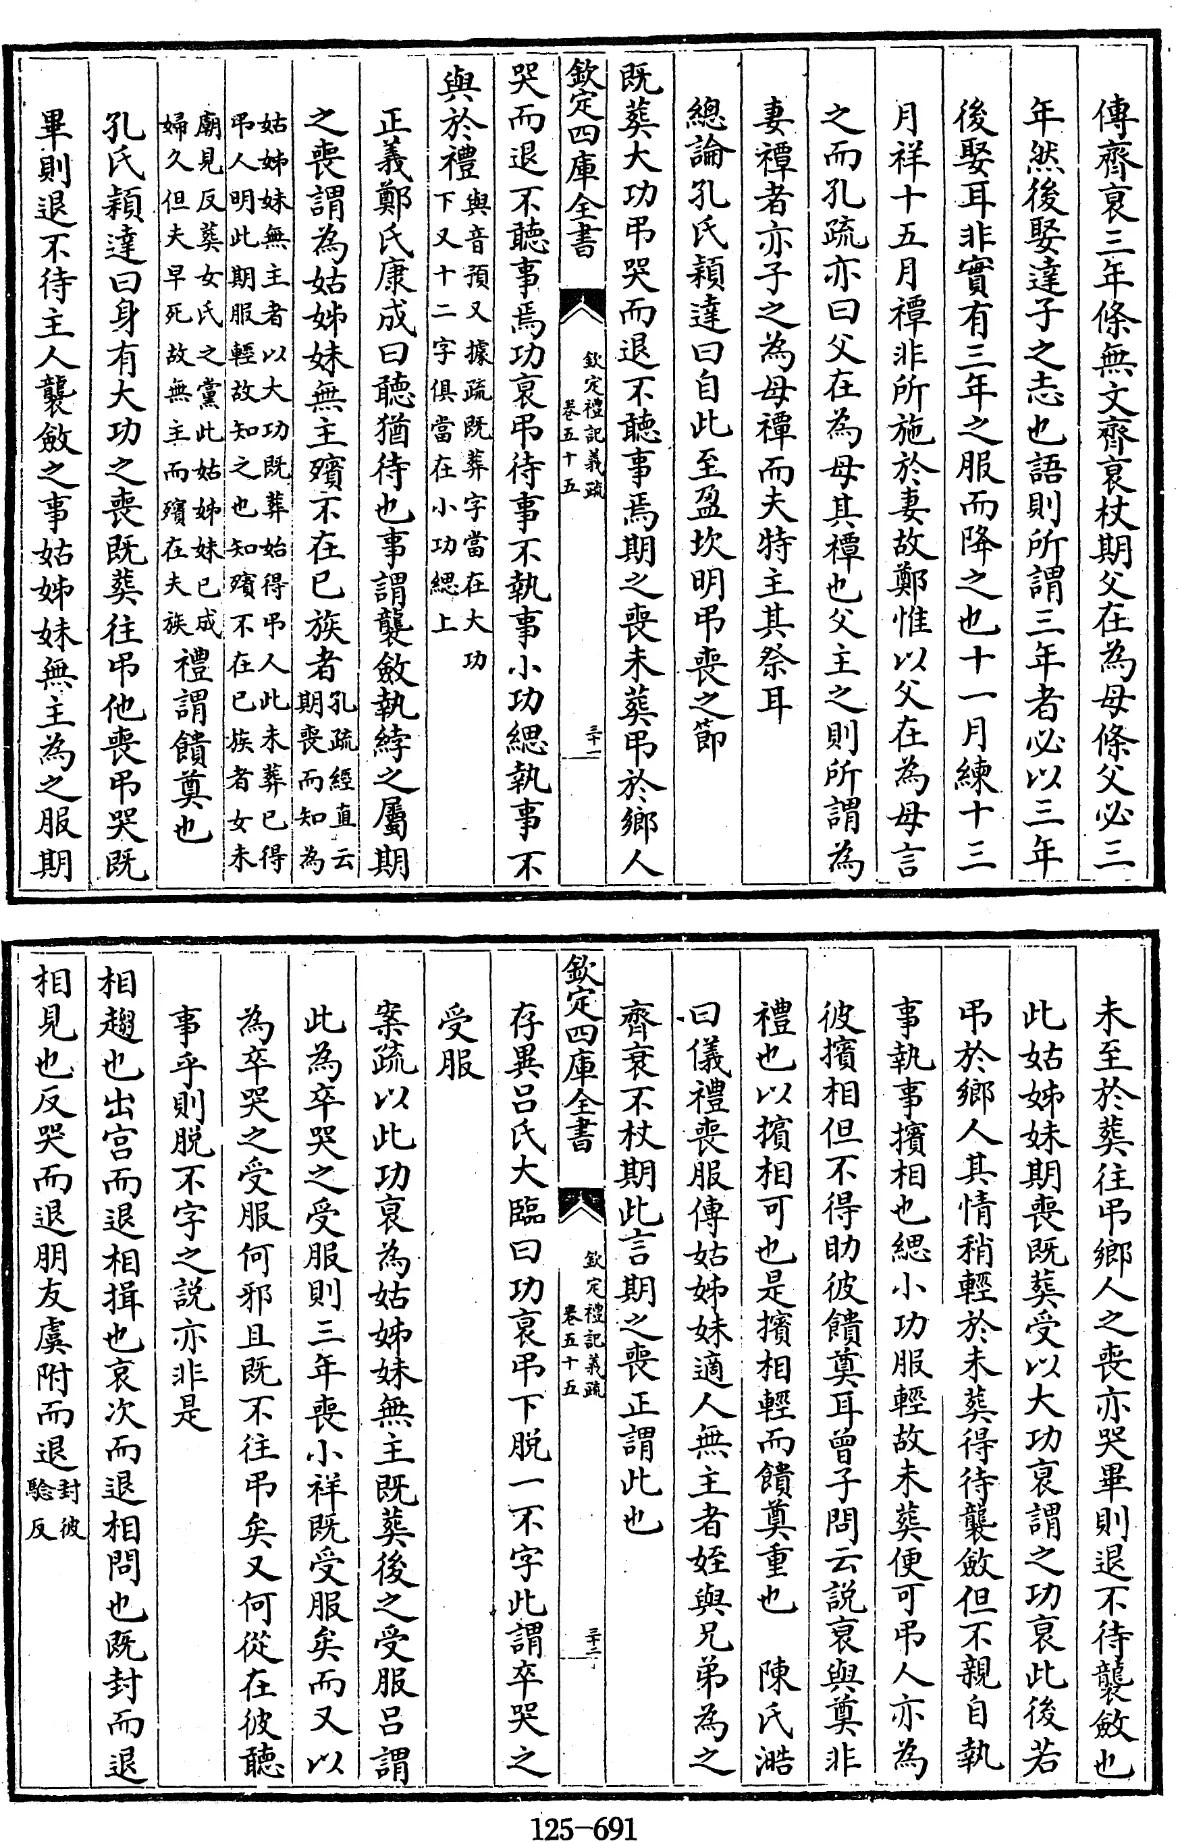 傳齊衰三年條無文齊衰杖期父在為母條父必三
年然後娶達子之志也語則所謂三年者必以三年
後娶耳非實有三年之服而降之也十一月練十三
月祥十五月禫非所施於妻故鄭惟以父在為母言
之而孔疏亦曰父在為母其禫也父主之則所謂為
妻禫者亦子之為母禫而夫特主其祭耳
總論孔氏穎達曰自此至盈坎明弔喪之節
既葬大功弔哭而退不聽事焉期之喪未葬弔於鄉人
欽定四庫全書
欽定禮記義疏
卷五十五
三十一
哭而退不聽事焉功衰弔待事不執事小功緦執事不
與於禮與音預又據疏既葬字當在大功
下又十二字俱當在小功緦上
正義鄭氏康成曰聽猶待也事謂襲斂執綍之屬期
之喪謂為姑姊妹無主殯不在已族者孔疏經直云
期喪而知為
姑姊妹無主者以大功既葬始得弔人此未葬已得
弔人明此期服輕故知之也知殯不在已族者女未
廟見反葬女氏之黨此姑姊妹已成
婦久但夫早死故無主而殯在夫族禮謂饋奠也
孔氏穎達曰身有大功之喪既葬往弔他喪弔哭既
畢則退不待主人襲斂之事姑姊妹無主為之服期
未至於葬往弔鄉人之喪亦哭畢則退不待襲斂也
此姑姊妹期喪既葬受以大功衰謂之功衰此後若
弔於鄉人其情稍輕於未葬得待襲斂但不親自執
事執事擯相也緦小功服輕故未葬便可弔人亦為
彼擯相但不得助彼饋奠耳曾子問云説衰與奠非
禮也以擯相可也是擯相輕而饋奠重也　陳氏澔
曰儀禮喪服傳姑姊妹適人無主者姪與兄弟為之
齊衰不杖期此言期之喪正謂此也
欽定四庫全書
欽定禮記義疏
卷五十五
三十二
存異呂氏大臨曰功衰弔下脱一不字此謂卒哭之
受服
案疏以此功衰為姑姊妹無主既葬後之受服呂謂
此為卒哭之受服則三年喪小祥既受服矣而又以
為卒哭之受服何邪且既不往弔矣又何從在彼聽
事乎則脱不字之説亦非是
相趨也出宫而退相揖也哀次而退相問也既封而退
相見也反哭而退朋友虞附而退封彼
驗反
125-691